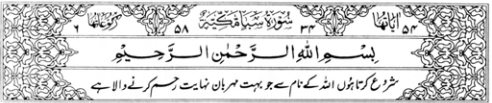 اٰیَاتُهَا ۵۴ ۳۴ سُوْرَةُ سَبَاٍ مَّكِّيَّةٌ ۵۸ رُكُوْعَاتُهَا ۶
بِسْمِ اللّٰهِ الرَّحْمٰنِ الرَّحِيْمِ
شروع کرتا ہوں اللہ کے نام سے جو بہت مہربان نہایت رحم کرنے والا ہے